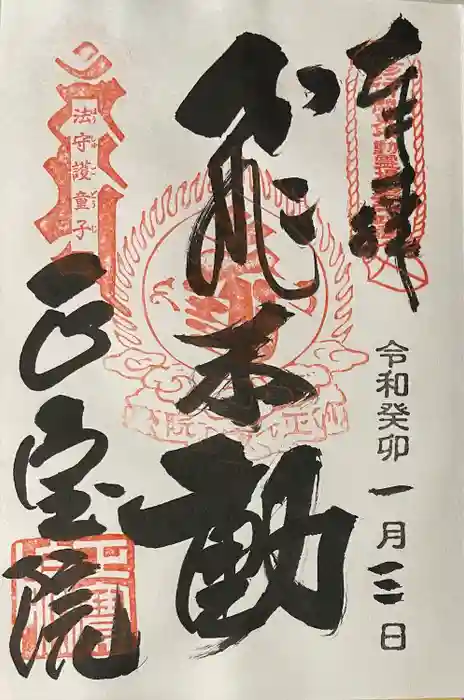 奉拝
令和癸卯一月三日
飛不動
法守護童子
正宝院